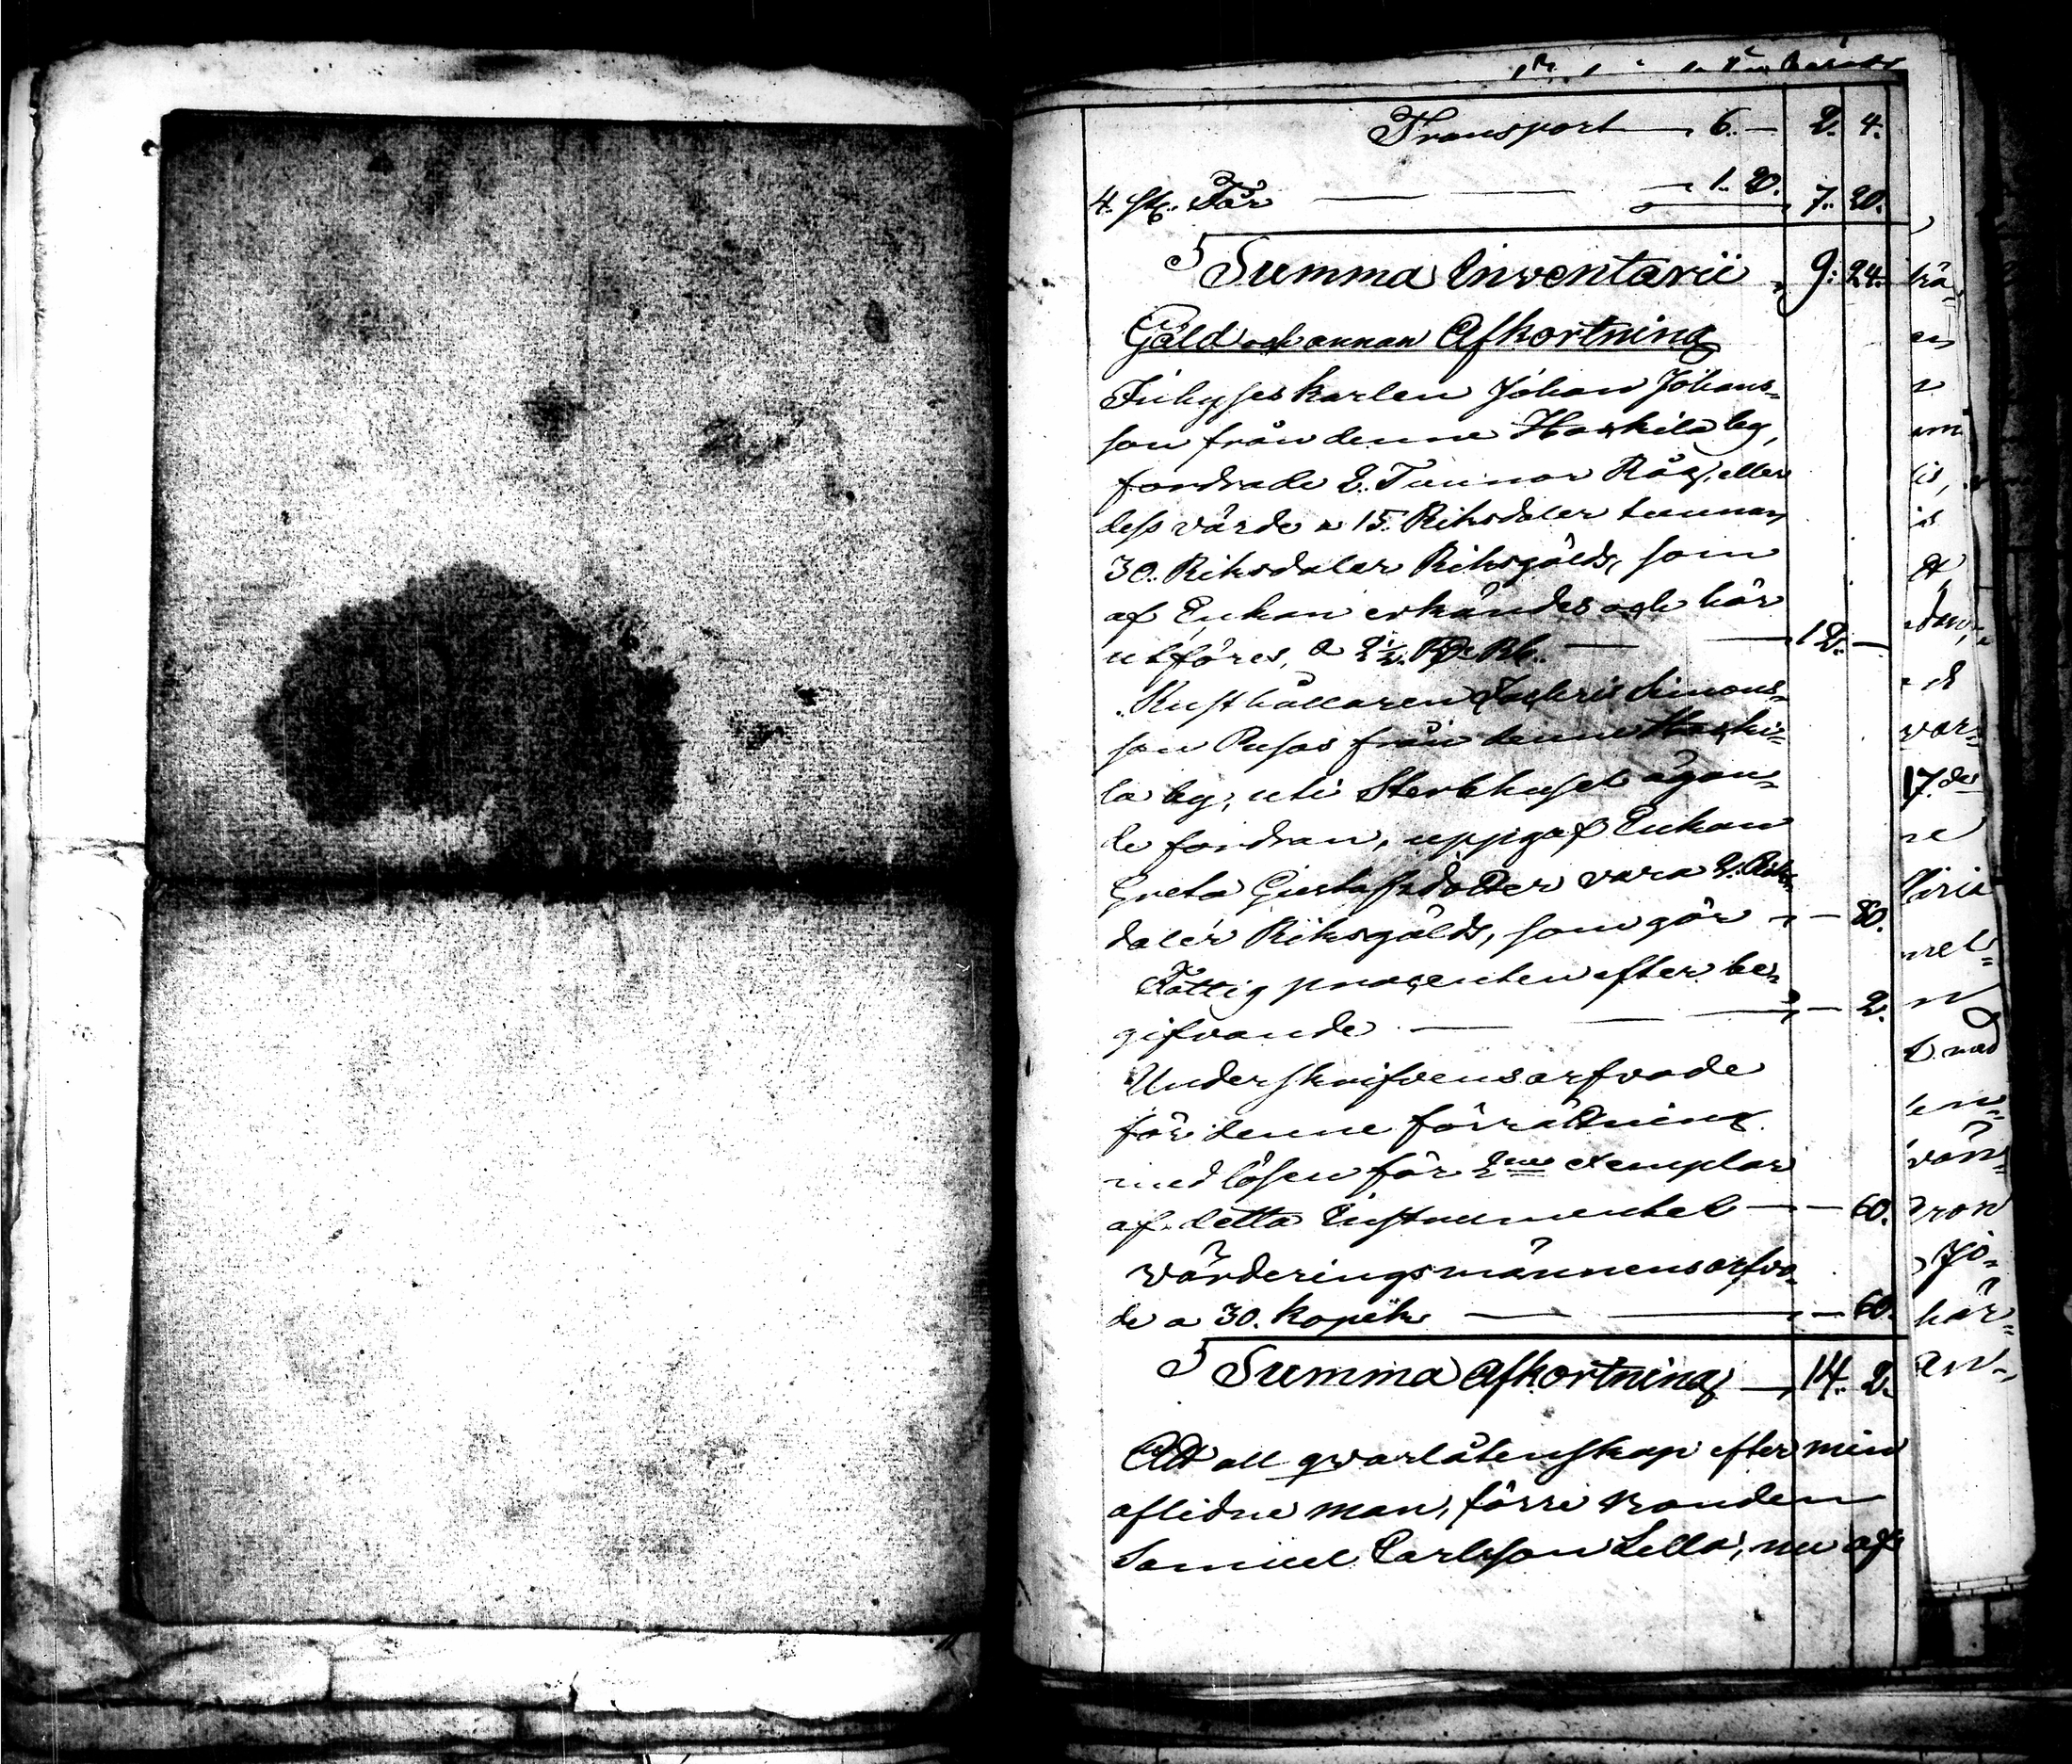 Transport — 6. — 2. 4.
4. st. Får — 1. 20. 7. 20.
Summa Inventarii 9. 24.
Gäld och annan Afkortning
Inhyseskarlen Johan Johans-
son från denne Haskila by,
fordrade 2. Tunnor Råg, eller
dess värde a 15. Riksdaler tunnan
30. Riksdaler Riksgälds, som
af Enkan erkändes och här
utföres, a 2½. Rd. Rbl. — 12. —
Rusthållaren Zachris Simons-
son Pusas från denne Haski-
la by, uti Sterbhuset ägan-
de fordran, uppgaf Enkan
Greta Gustafsdotter vara 2. Riks-
daler Riksgälds, som gör — 80.
Fattig procenten efter be-
gifvande — 2.
Underskrifvens arfvode
för denne förrättning
med lösen för 2ne exemplar
af detta Instrumentet — 60.
Värderingsmännens arfvo-
de a 30. kopek — 60.
Summa Afkortning — 14. 2.
Att all qvarlåtenskap efter min
aflidne man, förre Bonden
Samuel Carlsson Sella, nu af